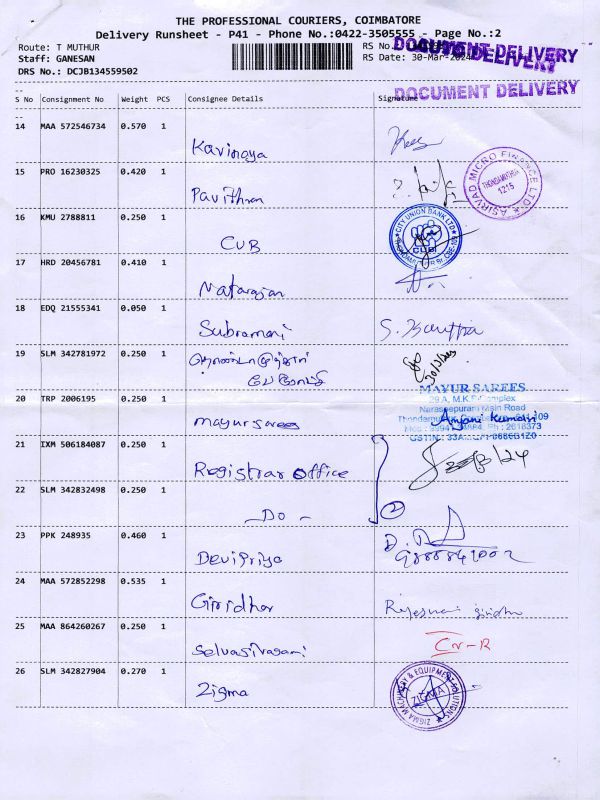 THE PROFESSIONAL COURIERS, COIMBATORE
Delivery Runsheet - P41 - Phone No.:0422-3505555 - Page No.:2
Route: T MUTHUR
RS No.:
Staff: GANESAN
RS Date: 30-Mar-2024
DRS No.: DCJB134559502
DOCUMENT DELIVERY
DOCUMENT DELIVERY
S No Consignment No Weight PCS Consignee Details Signature
14 MAA 572546734 0.570 1
Kavinaya
15 PRO 16230325 0.420 1
Pavithran
ASIRVAD MICRO FINANCE LTD
THONDAMUTHUR
1215
16 KMU 2788811 0.250 1
CUB
CITY UNION BANK LTD
CUB
17 HRD 20456781 0.410 1
Natarajan
18 EDQ 21555341 0.050 1
Subramani
19 SLM 342781972 0.250 1
20 TRP 2006195 0.250 1
mayur sarees
MAYUR SAREES
29 A, M.K.P Complex
Naraseepuram Main Road
21 IXM 506184087 0.250 1
Registrar office
22 SLM 342832498 0.250 1
- DO -
2
23 PPK 248935 0.460 1
Devipriya
24 MAA 572852298 0.535 1
Giridhar
25 MAA 864260267 0.250 1
Selvasivasami
26 SLM 342827904 0.270 1
Zigma
ZIGMA MACHINERY & EQUIPMENT SOLUTIONS
ZIGMA